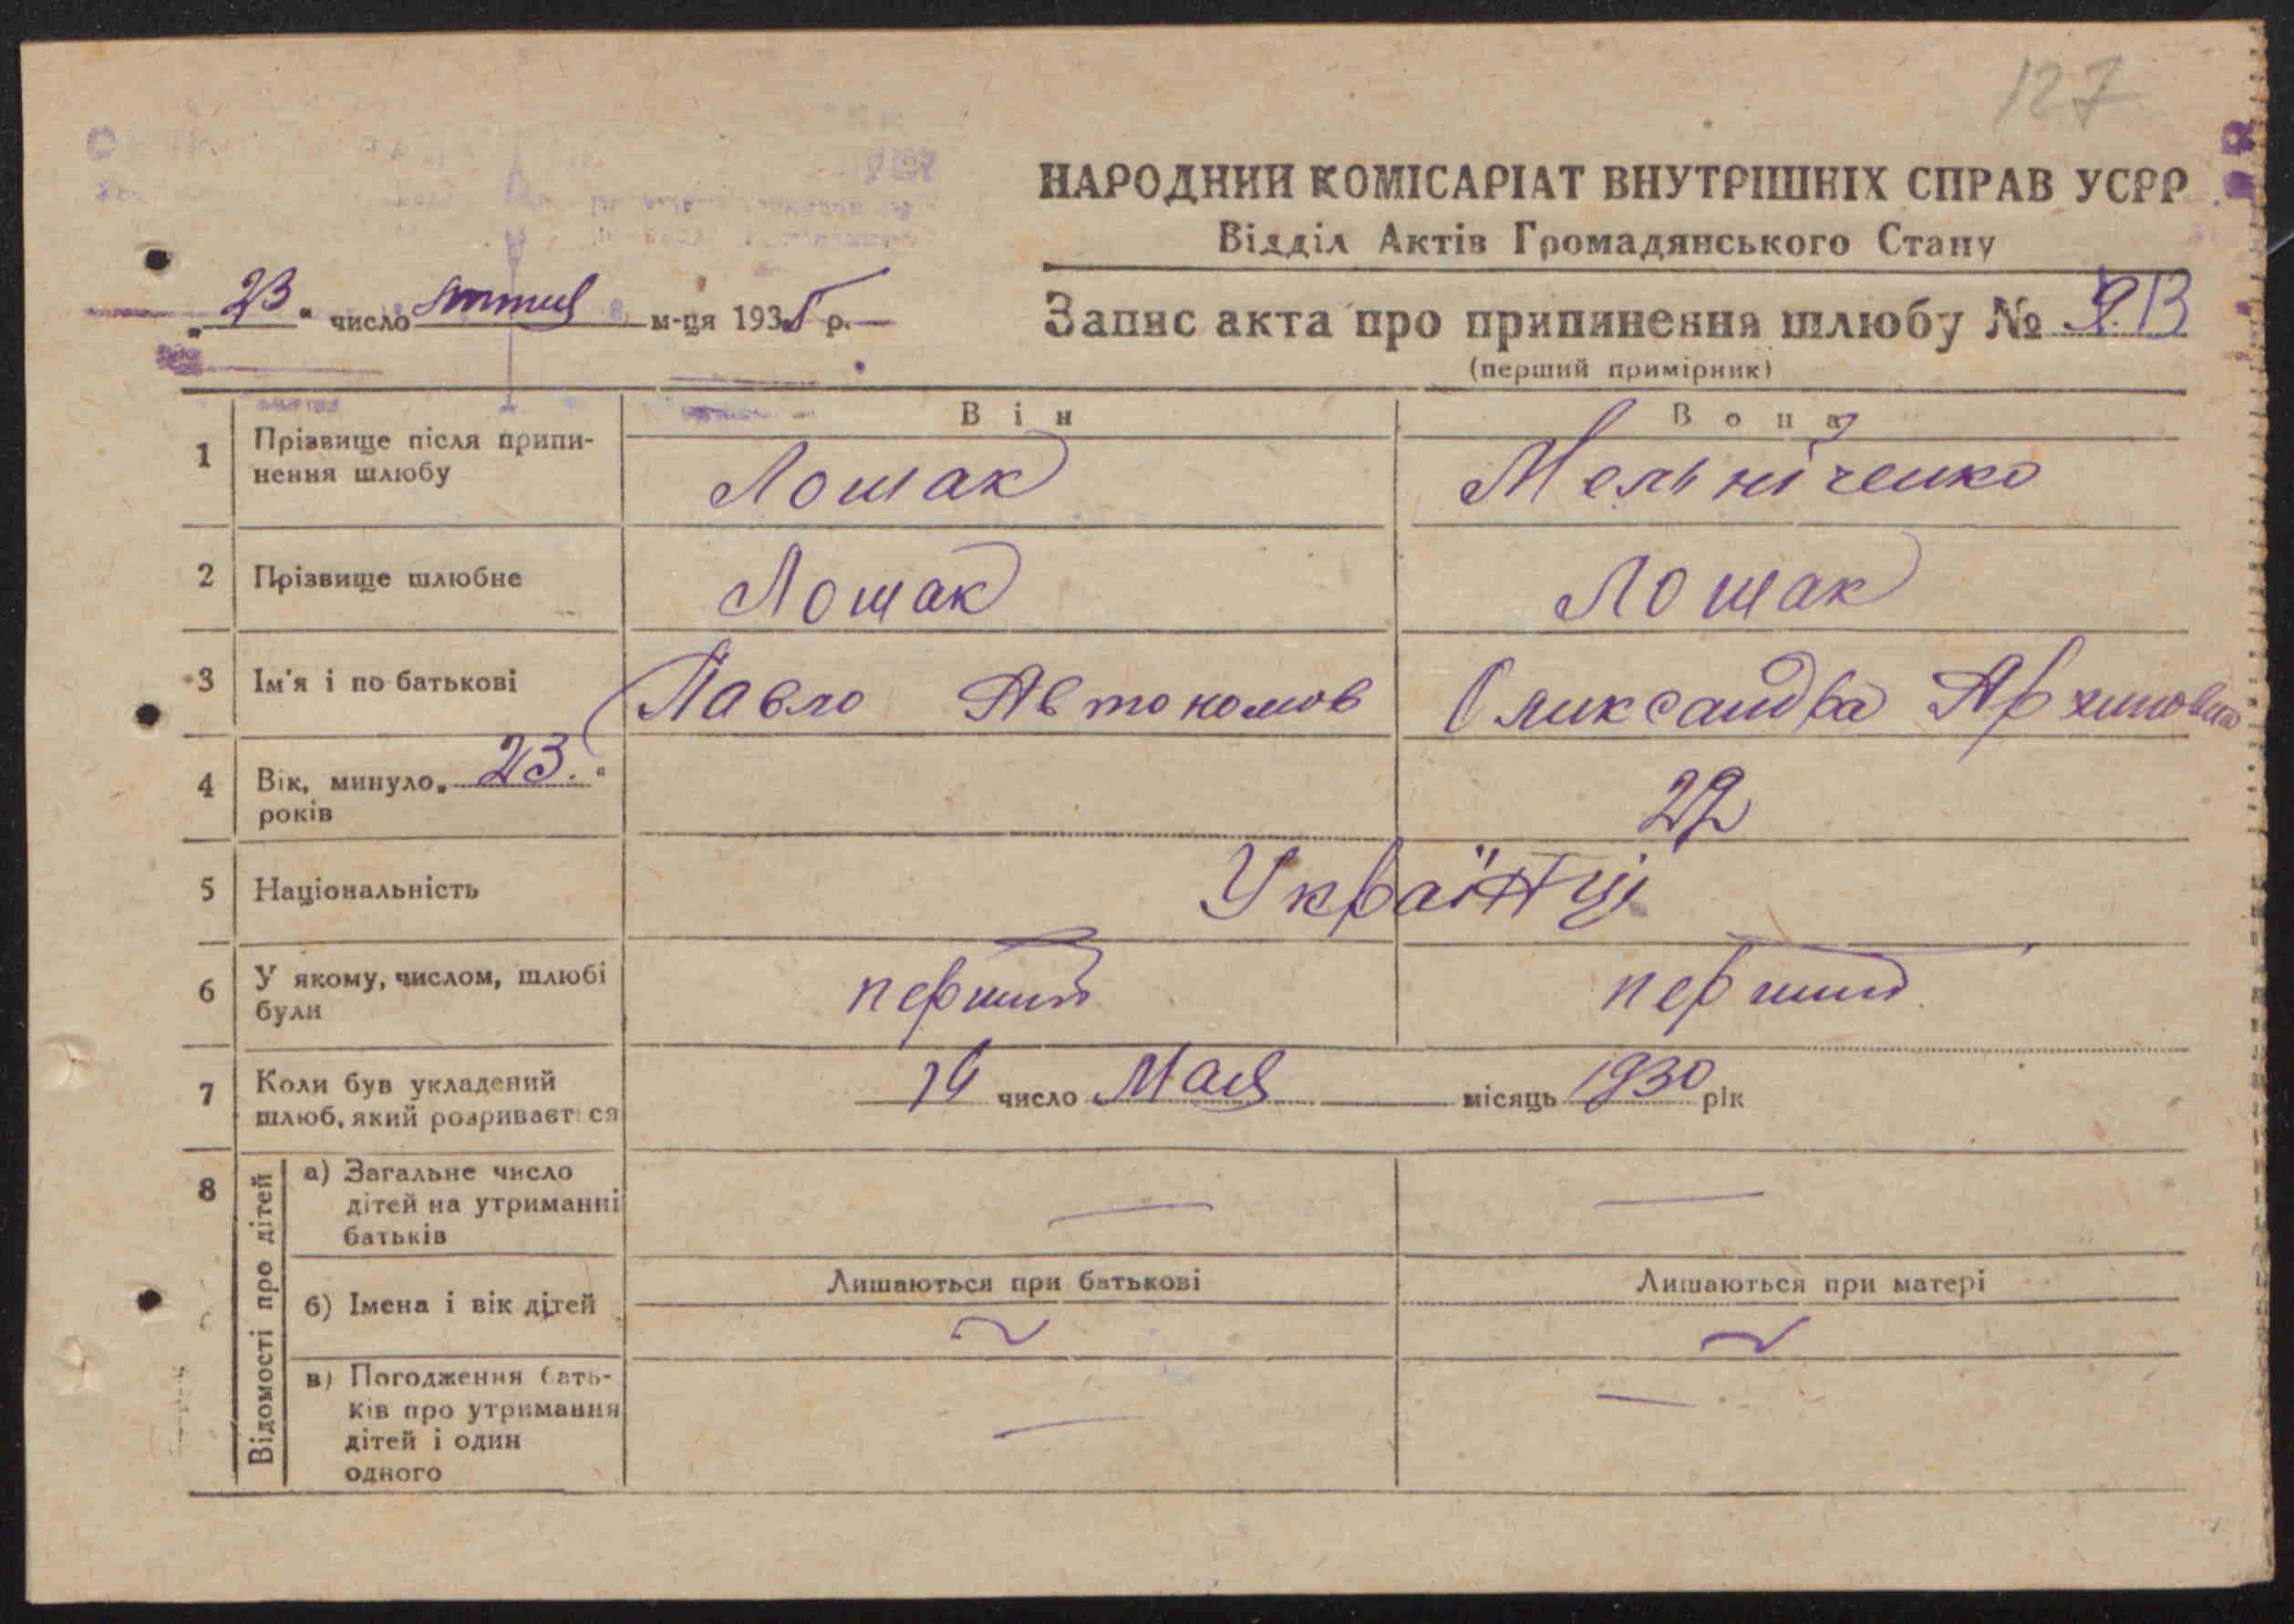 127
НАРОДНИЙ КОМІСАРІАТ ВНУТРІШНІХ СПРАВ УСРР
Відділ Актів Громадянського Стану
„23“ число м-ця 1935 р.
Запис акта про припинення шлюбу №
(перший примірник)
Він Вона
1 Прізвище після припи-
нення шлюбу
Лошак Мельніченко
2 Прізвище шлюбне Лошак Лошак
3 Ім'я і по батькові Павло Автономов Оликсандра Архиповна
4 Вік, минуло „23.“
років
5 Національність Українці
6 У якому, числом, шлюбі
були
перший перший
7 Коли був укладений
шлюб, який розривається
число Мая місяць 1930 рік
8 Відомості про дітей
а) Загальне число
дітей на утриманні
батьків
Лишаються при батькові Лишаються при матері
б) Імена і вік дітей
в) Погодження бать-
ків про утримання
дітей і один
одного